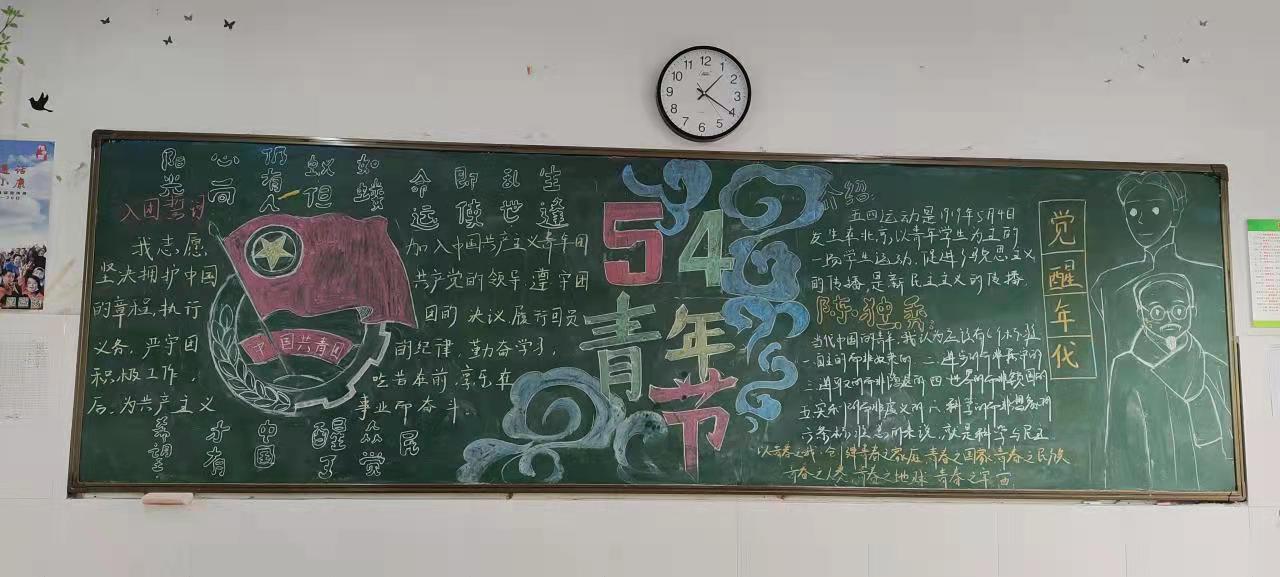 生逢
乱世
即使
命运
如蝼
蚁但
仍有人
心向
阳光
入团誓词
我志愿 加入中国共产主义青年团
坚决拥护中国 共产党的领导 遵守团
的章程,执行 团的决议,履行团员
义务,严守团 的纪律,勤奋学习,
积极工作, 吃苦在前,享乐在
后,为共产主义 事业而奋斗.
中国共青团
众觉
醒了
中国
才有
希望
54
青年节
介绍:
五四运动是1919年5月4日
发生在北京,以青年学生为主的
一场学生运动,促进了马克思主义
的传播,是新民主主义的传播.
陈独秀:
当代中国的青年,我认为应该有6个标准
一.自主的而非奴隶的 二.进步的而非保守的
三.进取的而非退隐的 四.世界的而非锁国的
五.实利的而非虚文的 六.科学的而非想象的
六条标准总的来说,就是科学与民主
以青春之我,创建青春之家庭,青春之国家,青春之民族
青春之人类,青春之地球,青春之宇宙
觉醒年代
12
1
2
3
4
5
6
7
8
9
10
11